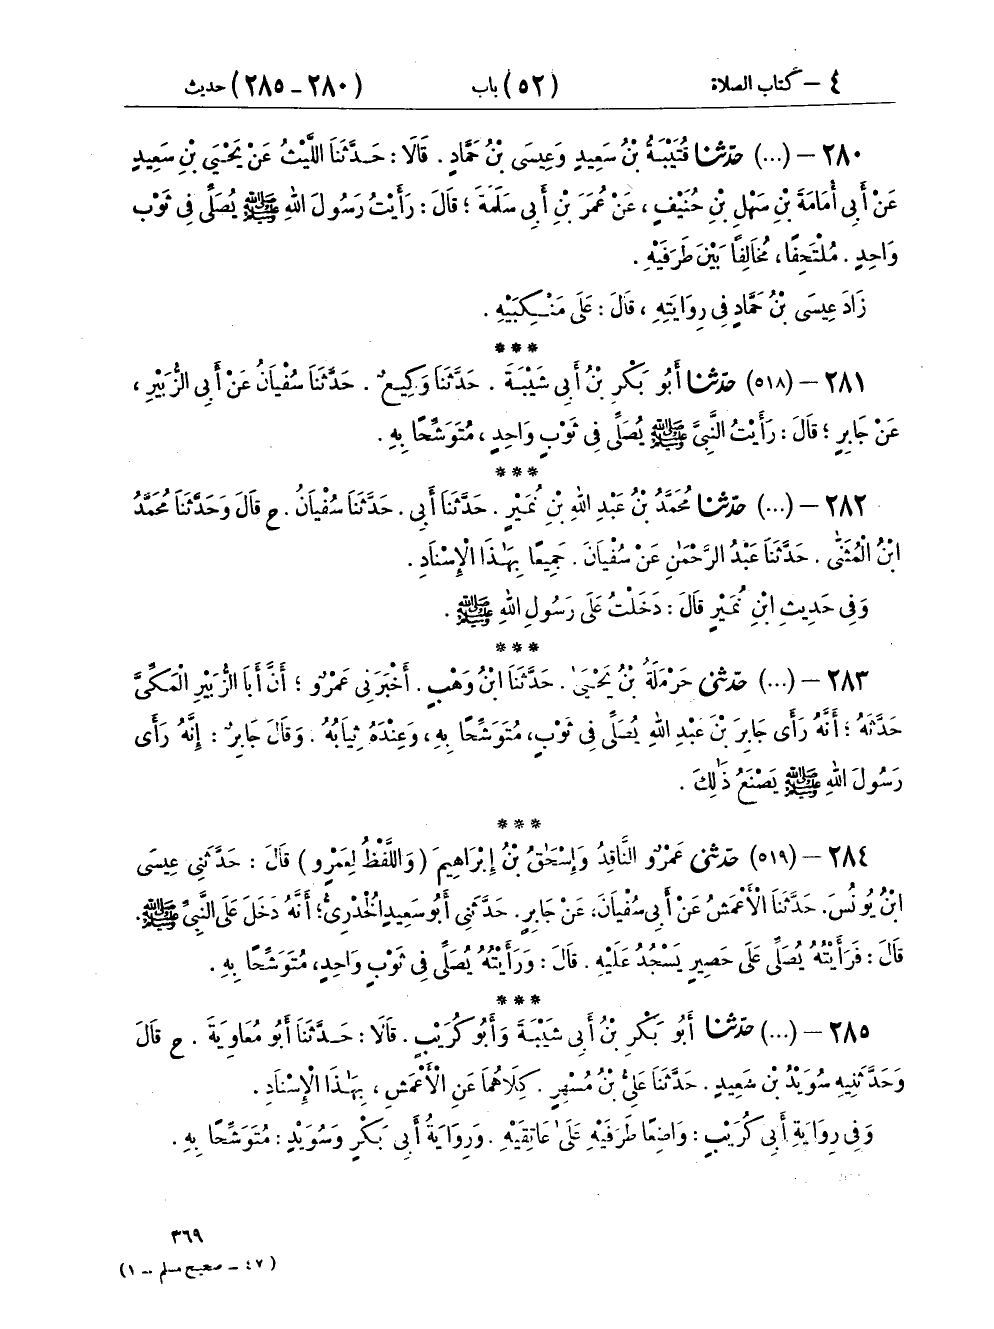 ٤ – كتاب الصلاة (٥٢) باب (٢٨٠ – ٢٨٥) حديث
٢٨٠ – (...) حَدَّثَنَا قُتَيْبَةُ بْنُ سَعِيدٍ وَعِيسَى بْنُ حَمَّادٍ . قَالَا : حَدَّثَنَا اللَّيْثُ عَنْ يَحْيَى بْنِ سَعِيدٍ
عَنْ أَبِي أُمَامَةَ بْنِ سَهْلِ بْنِ حُنَيْفٍ ، عَنْ عُمَرَ بْنِ أَبِي سَلَمَةَ ؛ قَالَ : رَأَيْتُ رَسُولَ اللهِ ﷺ يُصَلِّي فِي ثَوْبٍ
وَاحِدٍ . مُلْتَحِفًا ، مُخَالِفًا بَيْنَ طَرَفَيْهِ .
زَادَ عِيسَى بْنُ حَمَّادٍ فِي رِوَايَتِهِ ، قَالَ : عَلَى مَنْكِبَيْهِ .
***
٢٨١ – (٥١٨) حَدَّثَنَا أَبُو بَكْرِ بْنُ أَبِي شَيْبَةَ . حَدَّثَنَا وَكِيعٌ . حَدَّثَنَا سُفْيَانُ عَنْ أَبِي الزُّبَيْرِ ،
عَنْ جَابِرٍ ؛ قَالَ : رَأَيْتُ النَّبِيَّ ﷺ يُصَلِّي فِي ثَوْبٍ وَاحِدٍ ، مُتَوَشِّحًا بِهِ .
***
٢٨٢ – (...) حَدَّثَنَا مُحَمَّدُ بْنُ عَبْدِ اللهِ بْنِ نُمَيْرٍ . حَدَّثَنَا أَبِي . حَدَّثَنَا سُفْيَانُ . ح قَالَ وَحَدَّثَنَا مُحَمَّدُ
ابْنُ الْمُثَنَّى . حَدَّثَنَا عَبْدُ الرَّحْمَٰنِ عَنْ سُفْيَانَ . جَمِيعًا بِهَٰذَا الْإِسْنَادِ .
وَفِي حَدِيثِ ابْنِ نُمَيْرٍ قَالَ : دَخَلْتُ عَلَى رَسُولِ اللهِ ﷺ .
***
٢٨٣ – (...) حَدَّثَنِي حَرْمَلَةُ بْنُ يَحْيَىٰ . حَدَّثَنَا ابْنُ وَهْبٍ . أَخْبَرَنِي عَمْرٌو ؛ أَنَّ أَبَا الزُّبَيْرِ الْمَكِّيَّ
حَدَّثَهُ ؛ أَنَّهُ رَأَى جَابِرَ بْنَ عَبْدِ اللهِ يُصَلِّي فِي ثَوْبٍ ، مُتَوَشِّحًا بِهِ ، وَعِنْدَهُ ثِيَابُهُ . وَقَالَ جَابِرٌ : إِنَّهُ رَأَى
رَسُولَ اللهِ ﷺ يَصْنَعُ ذَٰلِكَ .
***
٢٨٤ – (٥١٩) حَدَّثَنِي عَمْرٌو النَّاقِدُ وَإِسْحَٰقُ بْنُ إِبْرَاهِيمَ ( وَاللَّفْظُ لِعَمْرٍو ) قَالَ : حَدَّثَنِي عِيسَى
ابْنُ يُونُسَ . حَدَّثَنَا الْأَعْمَشُ عَنْ أَبِي سُفْيَانَ ، عَنْ جَابِرٍ . حَدَّثَنِي أَبُو سَعِيدٍ الْخُدْرِيُّ ؛ أَنَّهُ دَخَلَ عَلَى النَّبِيِّ ﷺ .
قَالَ : فَرَأَيْتُهُ يُصَلِّي عَلَى حَصِيرٍ يَسْجُدُ عَلَيْهِ . قَالَ : وَرَأَيْتُهُ يُصَلِّي فِي ثَوْبٍ وَاحِدٍ ، مُتَوَشِّحًا بِهِ .
***
٢٨٥ – (...) حَدَّثَنَا أَبُو بَكْرِ بْنُ أَبِي شَيْبَةَ وَأَبُو كُرَيْبٍ . قَالَا : حَدَّثَنَا أَبُو مُعَاوِيَةَ . ح قَالَ
وَحَدَّثَنِيهِ سُوَيْدُ بْنُ سَعِيدٍ . حَدَّثَنَا عَلِيُّ بْنُ مُسْهِرٍ . كِلَاهُمَا عَنِ الْأَعْمَشِ ، بِهَٰذَا الْإِسْنَادِ .
وَفِي رِوَايَةِ أَبِي كُرَيْبٍ : وَاضِعًا طَرَفَيْهِ عَلَىٰ عَاتِقَيْهِ . وَرِوَايَةُ أَبِي بَكْرٍ وَسُوَيْدٍ : مُتَوَشِّحًا بِهِ .
٣٦٩
(٤٧ – صحيح مسلم – ١)